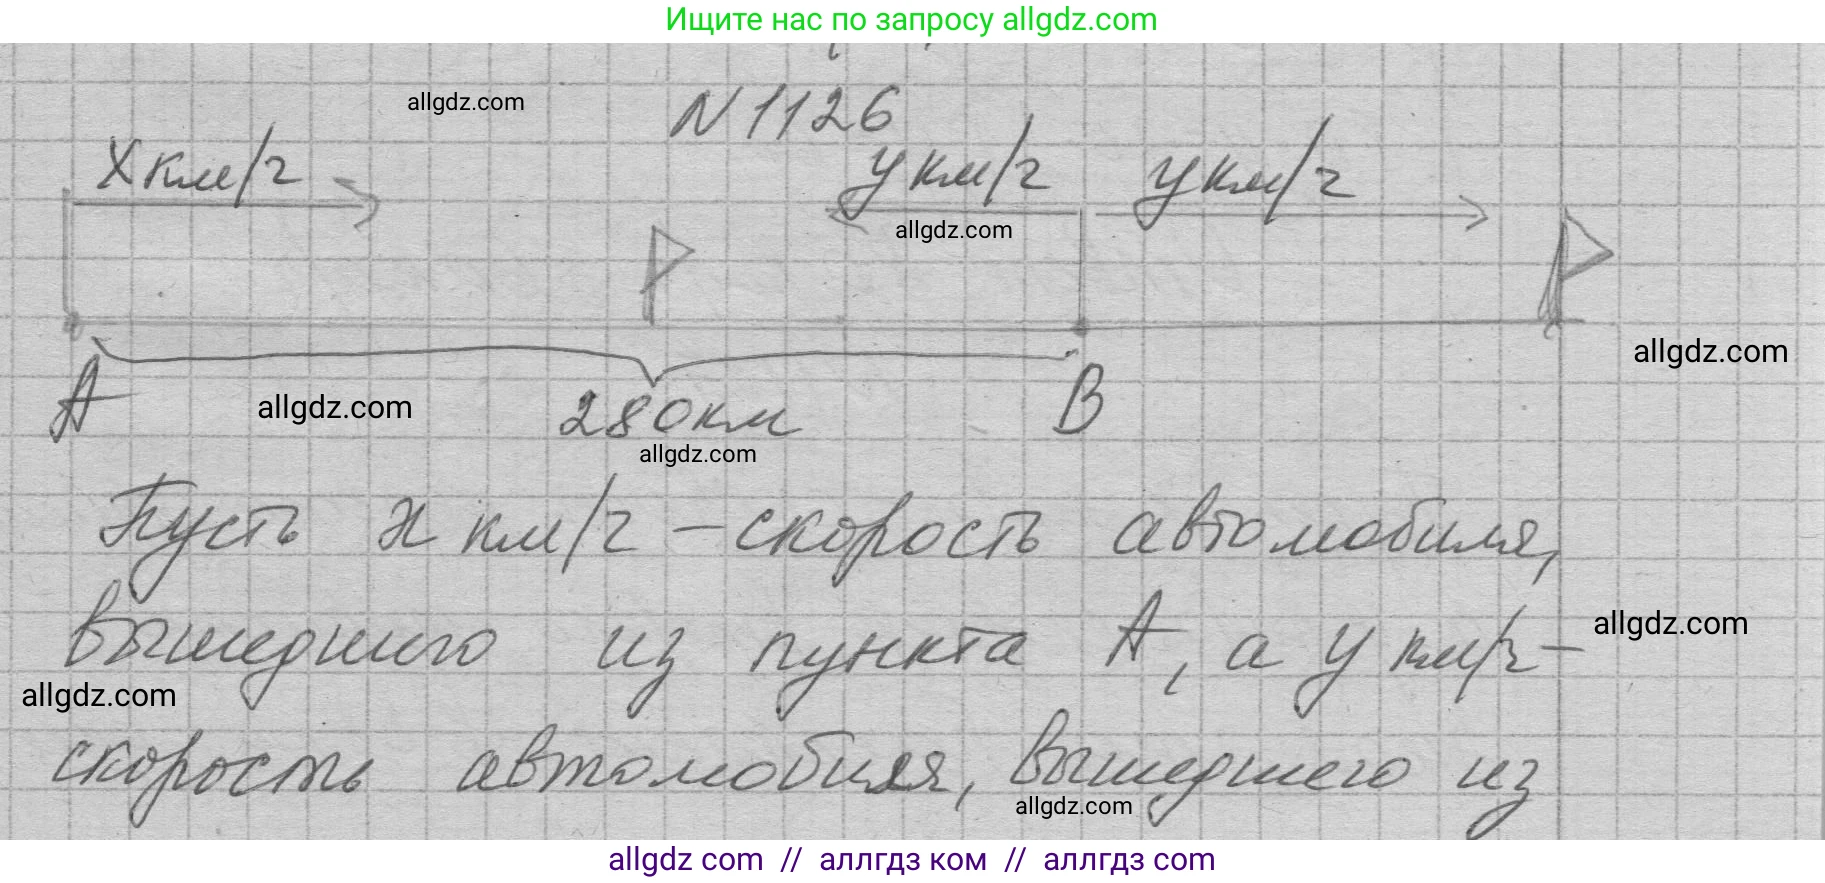 Ищите нас по запросу allgdz.com
N 1126
allgdz.com
x км/ч
y км/ч
y км/ч
allgdz.com
allgdz.com
A
allgdz.com
280 км
B
allgdz.com
Пусть x км/ч – скорость автомобиля,
вышедшего из пункта A, а y км/ч –
allgdz.com
allgdz.com
скорость автомобиля, вышедшего из
allgdz.com
allgdz com // аллгдз ком // аллгдз com